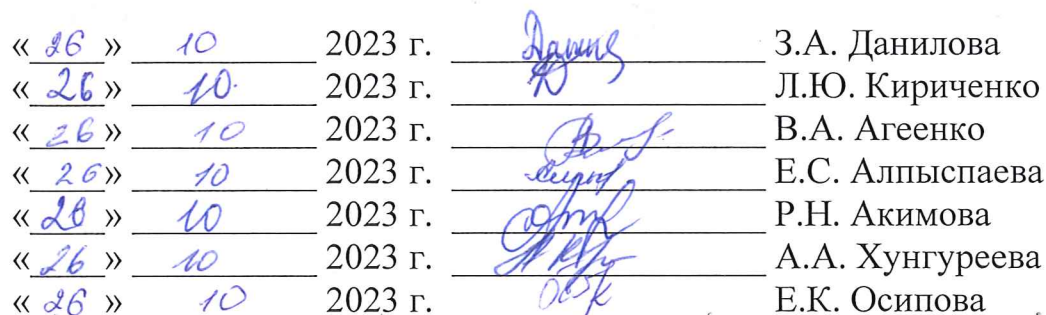 « 26 » 10 2023 г. З.А. Данилова
« 26 » 10. 2023 г. Л.Ю. Кириченко
« 26 » 10 2023 г. В.А. Агеенко
« 26 » 10 2023 г. Е.С. Алпыспаева
« 10 2023 г. Р.Н. Акимова
« 26 » 10 2023 г. А.А. Хунгуреева
« 26 » 10 2023 г. Е.К. Осипова